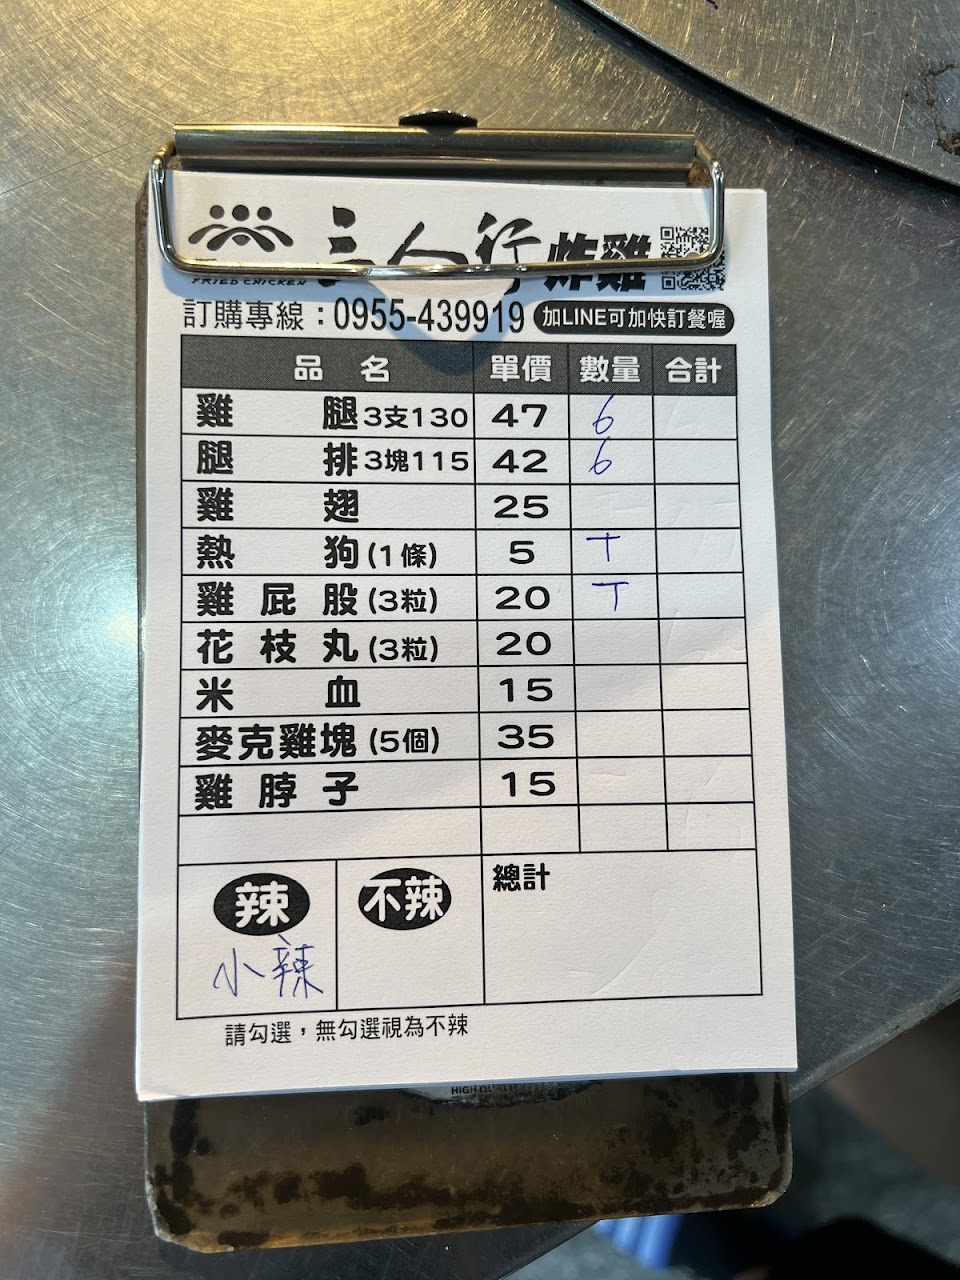 三人行炸雞
FRIED CHICKEN
訂購專線：0955-439919 加LINE可加快訂餐喔
品 名 單價 數量 合計
雞 腿 3支130 47 6
腿 排 3塊115 42 6
雞 翅 25
熱 狗 (1條) 5 T
雞 屁 股 (3粒) 20 T
花 枝 丸 (3粒) 20
米 血 15
麥克雞塊 (5個) 35
雞 脖 子 15
辣 不辣 總計
小辣
請勾選，無勾選視為不辣